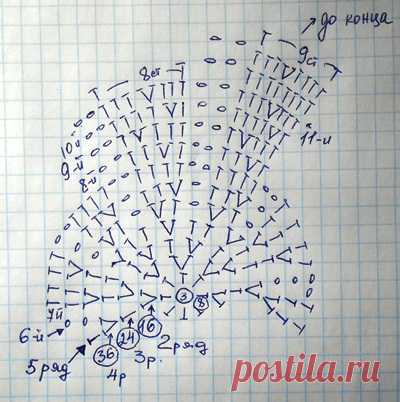 до конца
9ст
8ст
10й
9-й
8-й
11-й
7й
3
8
6-й
16
24
2 ряд
5 ряд
36
3р.
4р
postila.ru